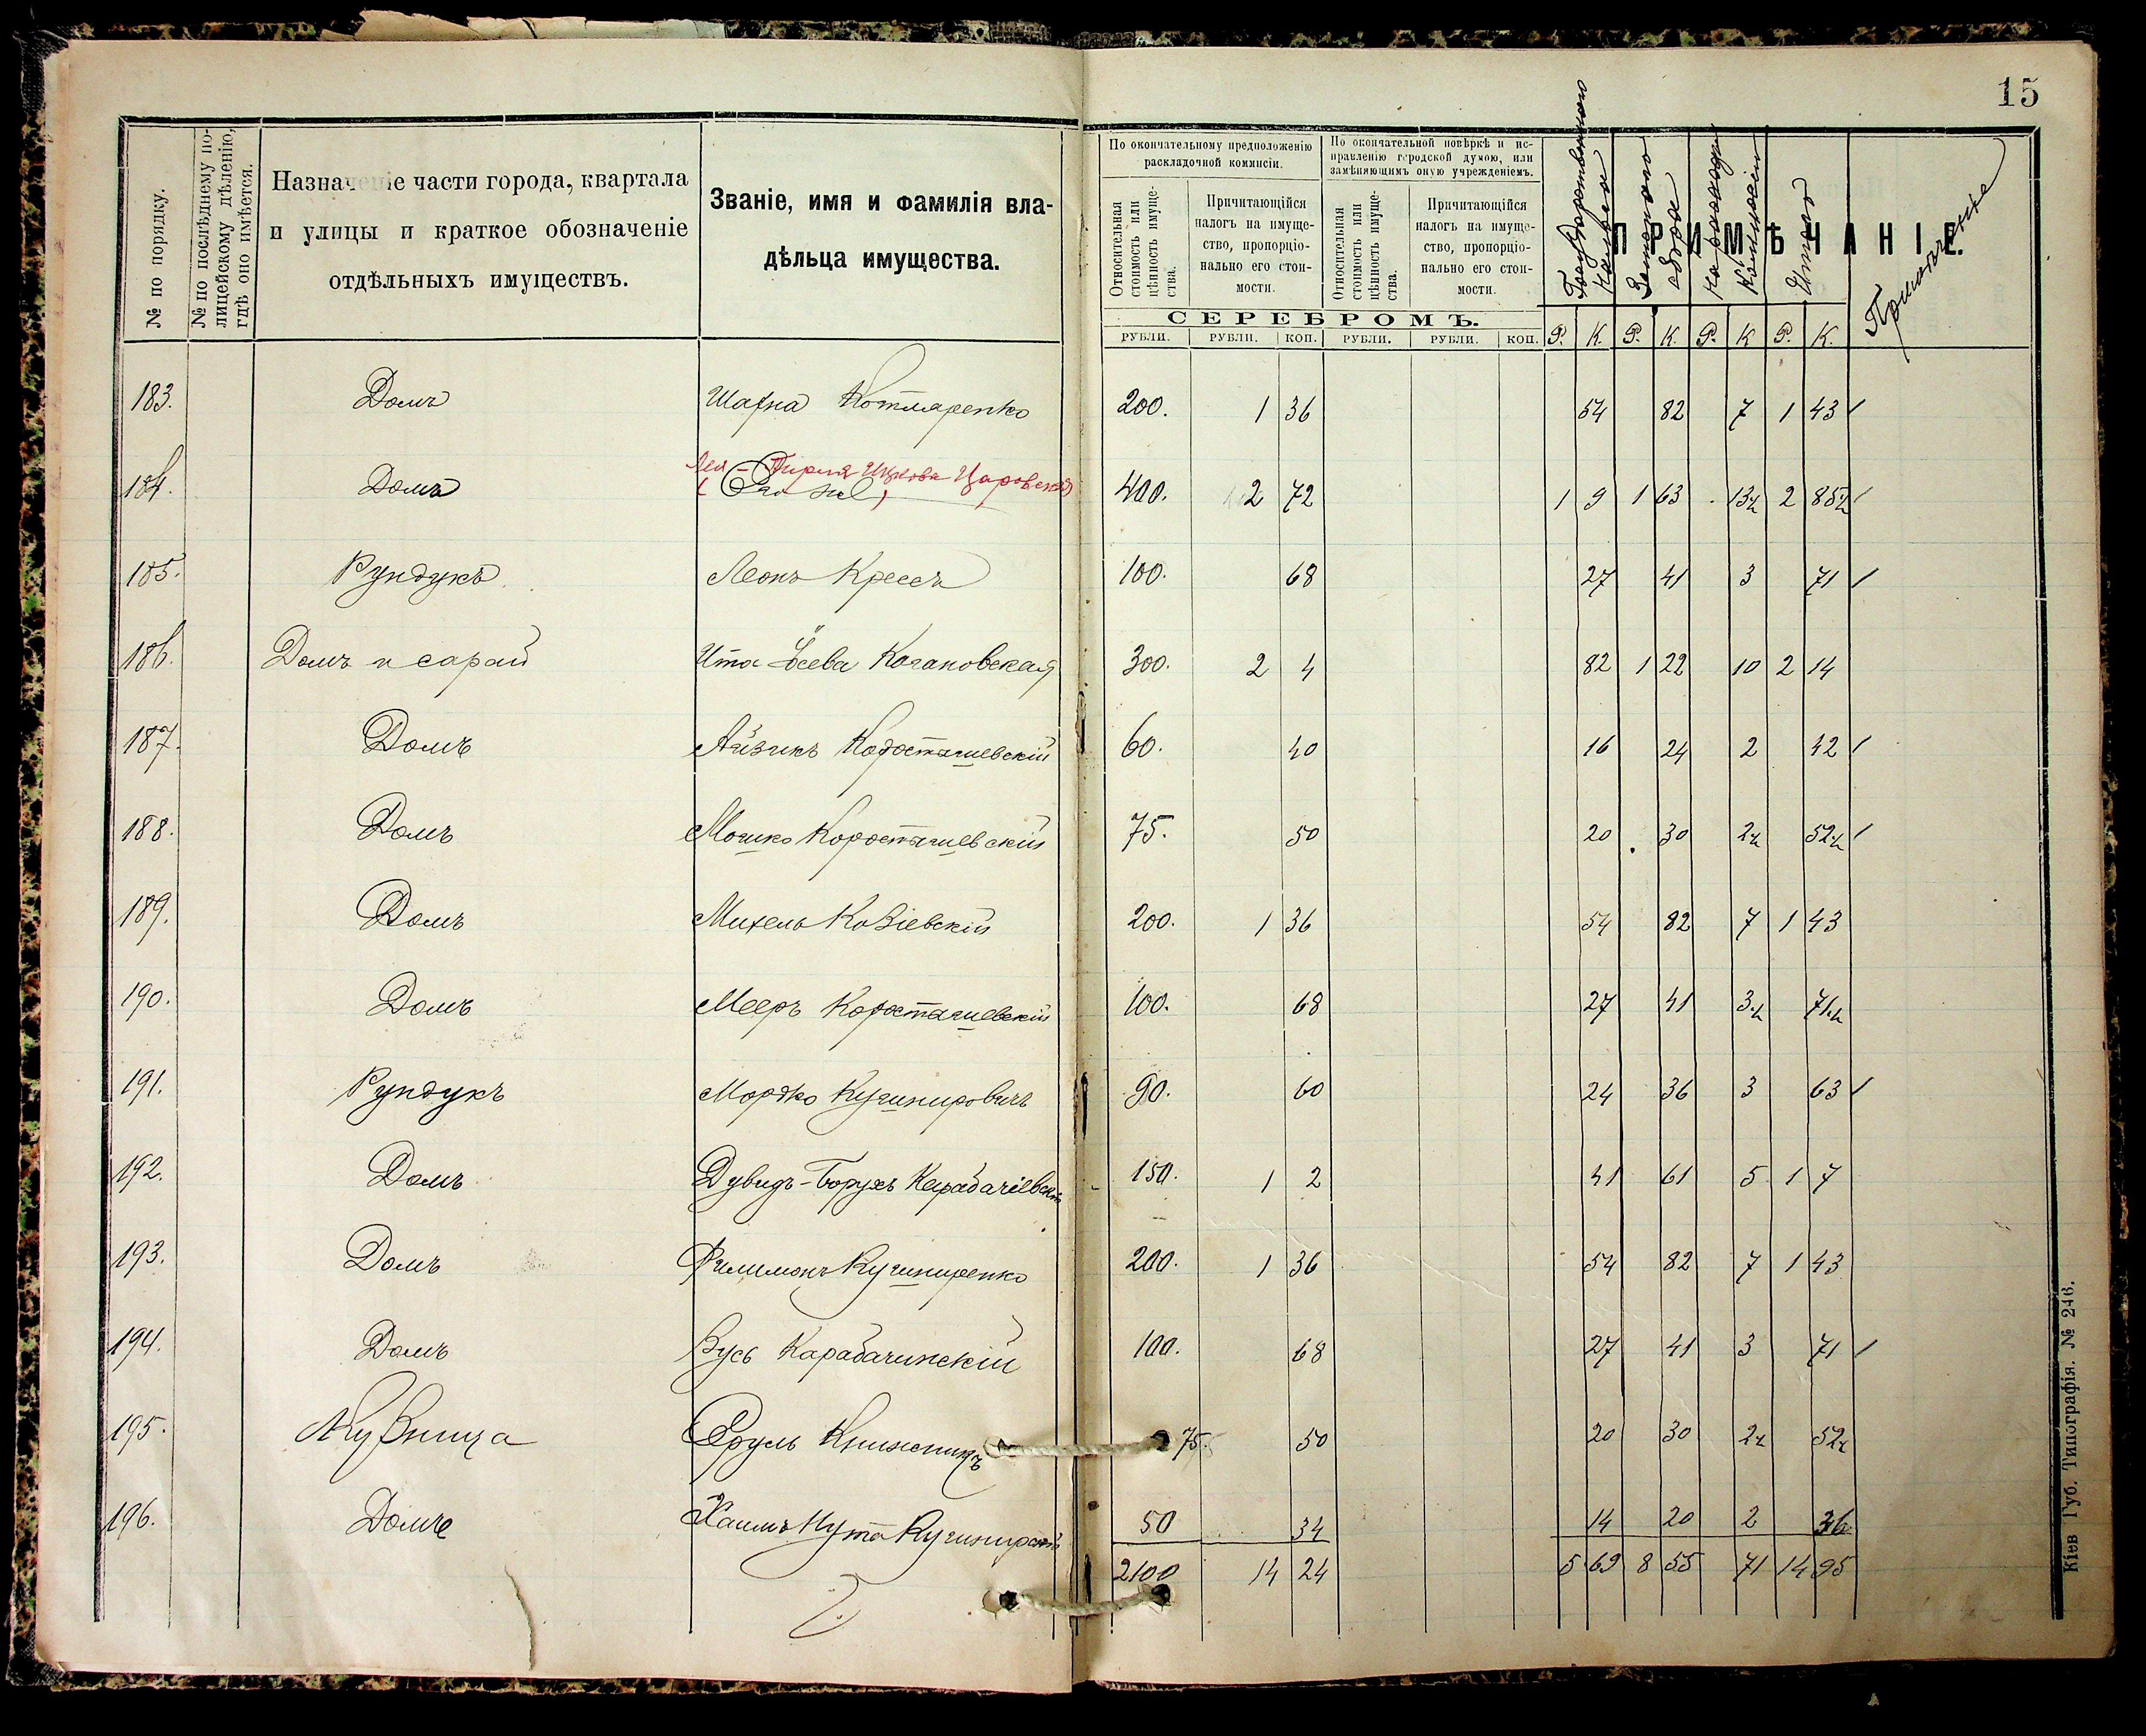 15
№ по порядку.
№ по послѣднему по-
лицейскому дѣленію,
гдѣ оно имѣется.
Назначеніе части города, квартала
и улицы и краткое обозначеніе
отдѣльныхъ имуществъ.
Званіе, имя и фамилія вла-
дѣльца имущества.
По окончательному предположенію
раскладочной коммисіи.
По окончательной повѣркѣ и ис-
правленію городской думою, или
замѣняющимъ оную учрежденіемъ.
Относительная
стоимость или
цѣнность имуще-
ства.
Причитающійся
налогъ на имуще-
ство, пропорціо-
нально его стои-
мости.
Относительная
стоимость или
цѣнность имуще-
ства.
Причитающійся
налогъ на имуще-
ство, пропорціо-
нально его стои-
мости.
ПРИМѢЧАНІЕ.
Государственного
налога
Земского
сбора
На расходы
Комиссіи
Итого
Примѣчаніе
СЕРЕБРОМЪ.
РУБЛИ. РУБЛИ. КОП. РУБЛИ. РУБЛИ. КОП. Р. К. Р. К. Р. К Р. К.
183. Домъ Шахна Котляренко 200. 1 36 54 82 7 1 43
Лея - Пирля Ицкова Царовская
184. Домъ (Онъ же) 400. 2 72 1 9 1 63 13½ 2 85½
185. Рундукъ Леонъ Крессъ 100. 68 27 41 3 71
186. Домъ и сарай Ита Іосева Кагановская 300. 2 4 82 1 22 10 2 14
187. Домъ Айзикъ Коростышевскій 60. 40 16 24 2 42
188. Домъ Мошко Коростышевскій 75. 50 20 30 2½ 52½
189. Домъ Михель Козіевскій 200. 1 36 54 82 7 1 43
190. Домъ Мееръ Коростышевскій 100. 68 27 41 3.½ 71.½
191. Рундукъ Мордко Кушнировичъ 90. 60 24 36 3 63
192. Домъ Дувидъ-Борухъ Карабачіевскій 150. 1 2 41 61 5 1 7
193. Домъ Филимонъ Кушниренко 200. 1 36 54 82 7 1 43
194. Домъ Зусь Карабачинскій 100. 68 27 41 3 71
195. Кузница Сруль Книжникъ 75. 50 20 30 2½ 52½
196. Домъ Хаимъ Нута 50 34 14 20 2 36
2100 14 24 5 69 8 55 71 14 95
Кіев Губ. Типографія. № 246.